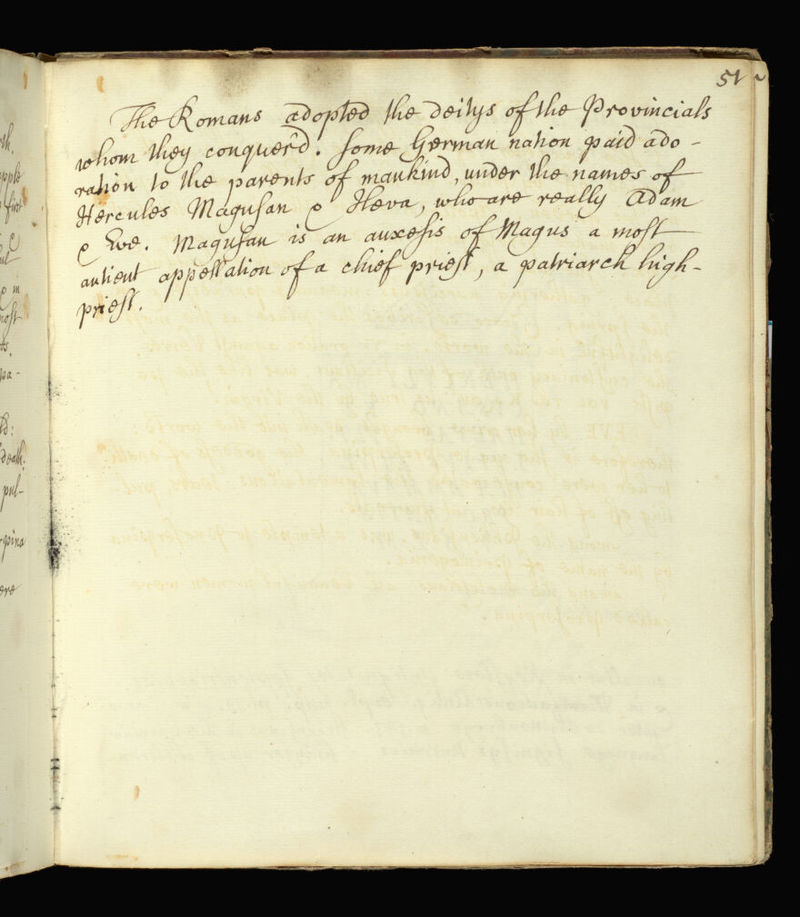 51
The Romans adopted the deitys of the Provincials
whom they conquer'd. Some German nation paid ado-
ration to the parents of mankind, under the names of
Hercules Magusan & Hæva, who are really Adam
& Eve. Magusan is an auxesis of Magus a most
antient appellation of a chief priest, a patriarch high-
priest.